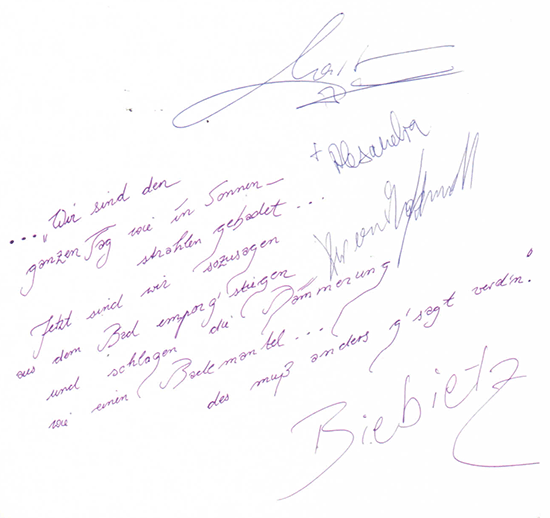 + Alexandra
... „Wir sind den
ganzen Tag wie in Sonnen–
strahlen gebadet...
Jetzt sind wir sozusagen
aus dem Bad emporg'stiegen
und schlagen die Dämmerung
wie einen Bademantel...
des muß anders g'sagt werd'n."
Biebietz